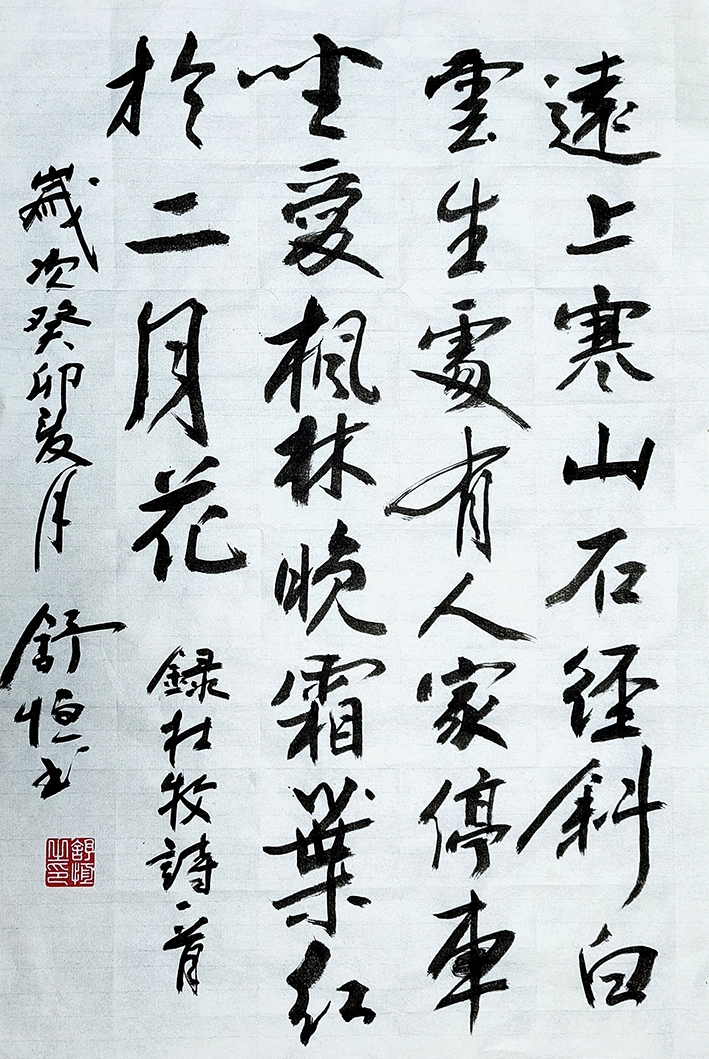 遠上寒山石徑斜白
雲生處有人家停車
坐愛楓林晚霜葉紅
於二月花
録杜牧詩一首
歲次癸卯夏月
舒恒书
舒恒之印